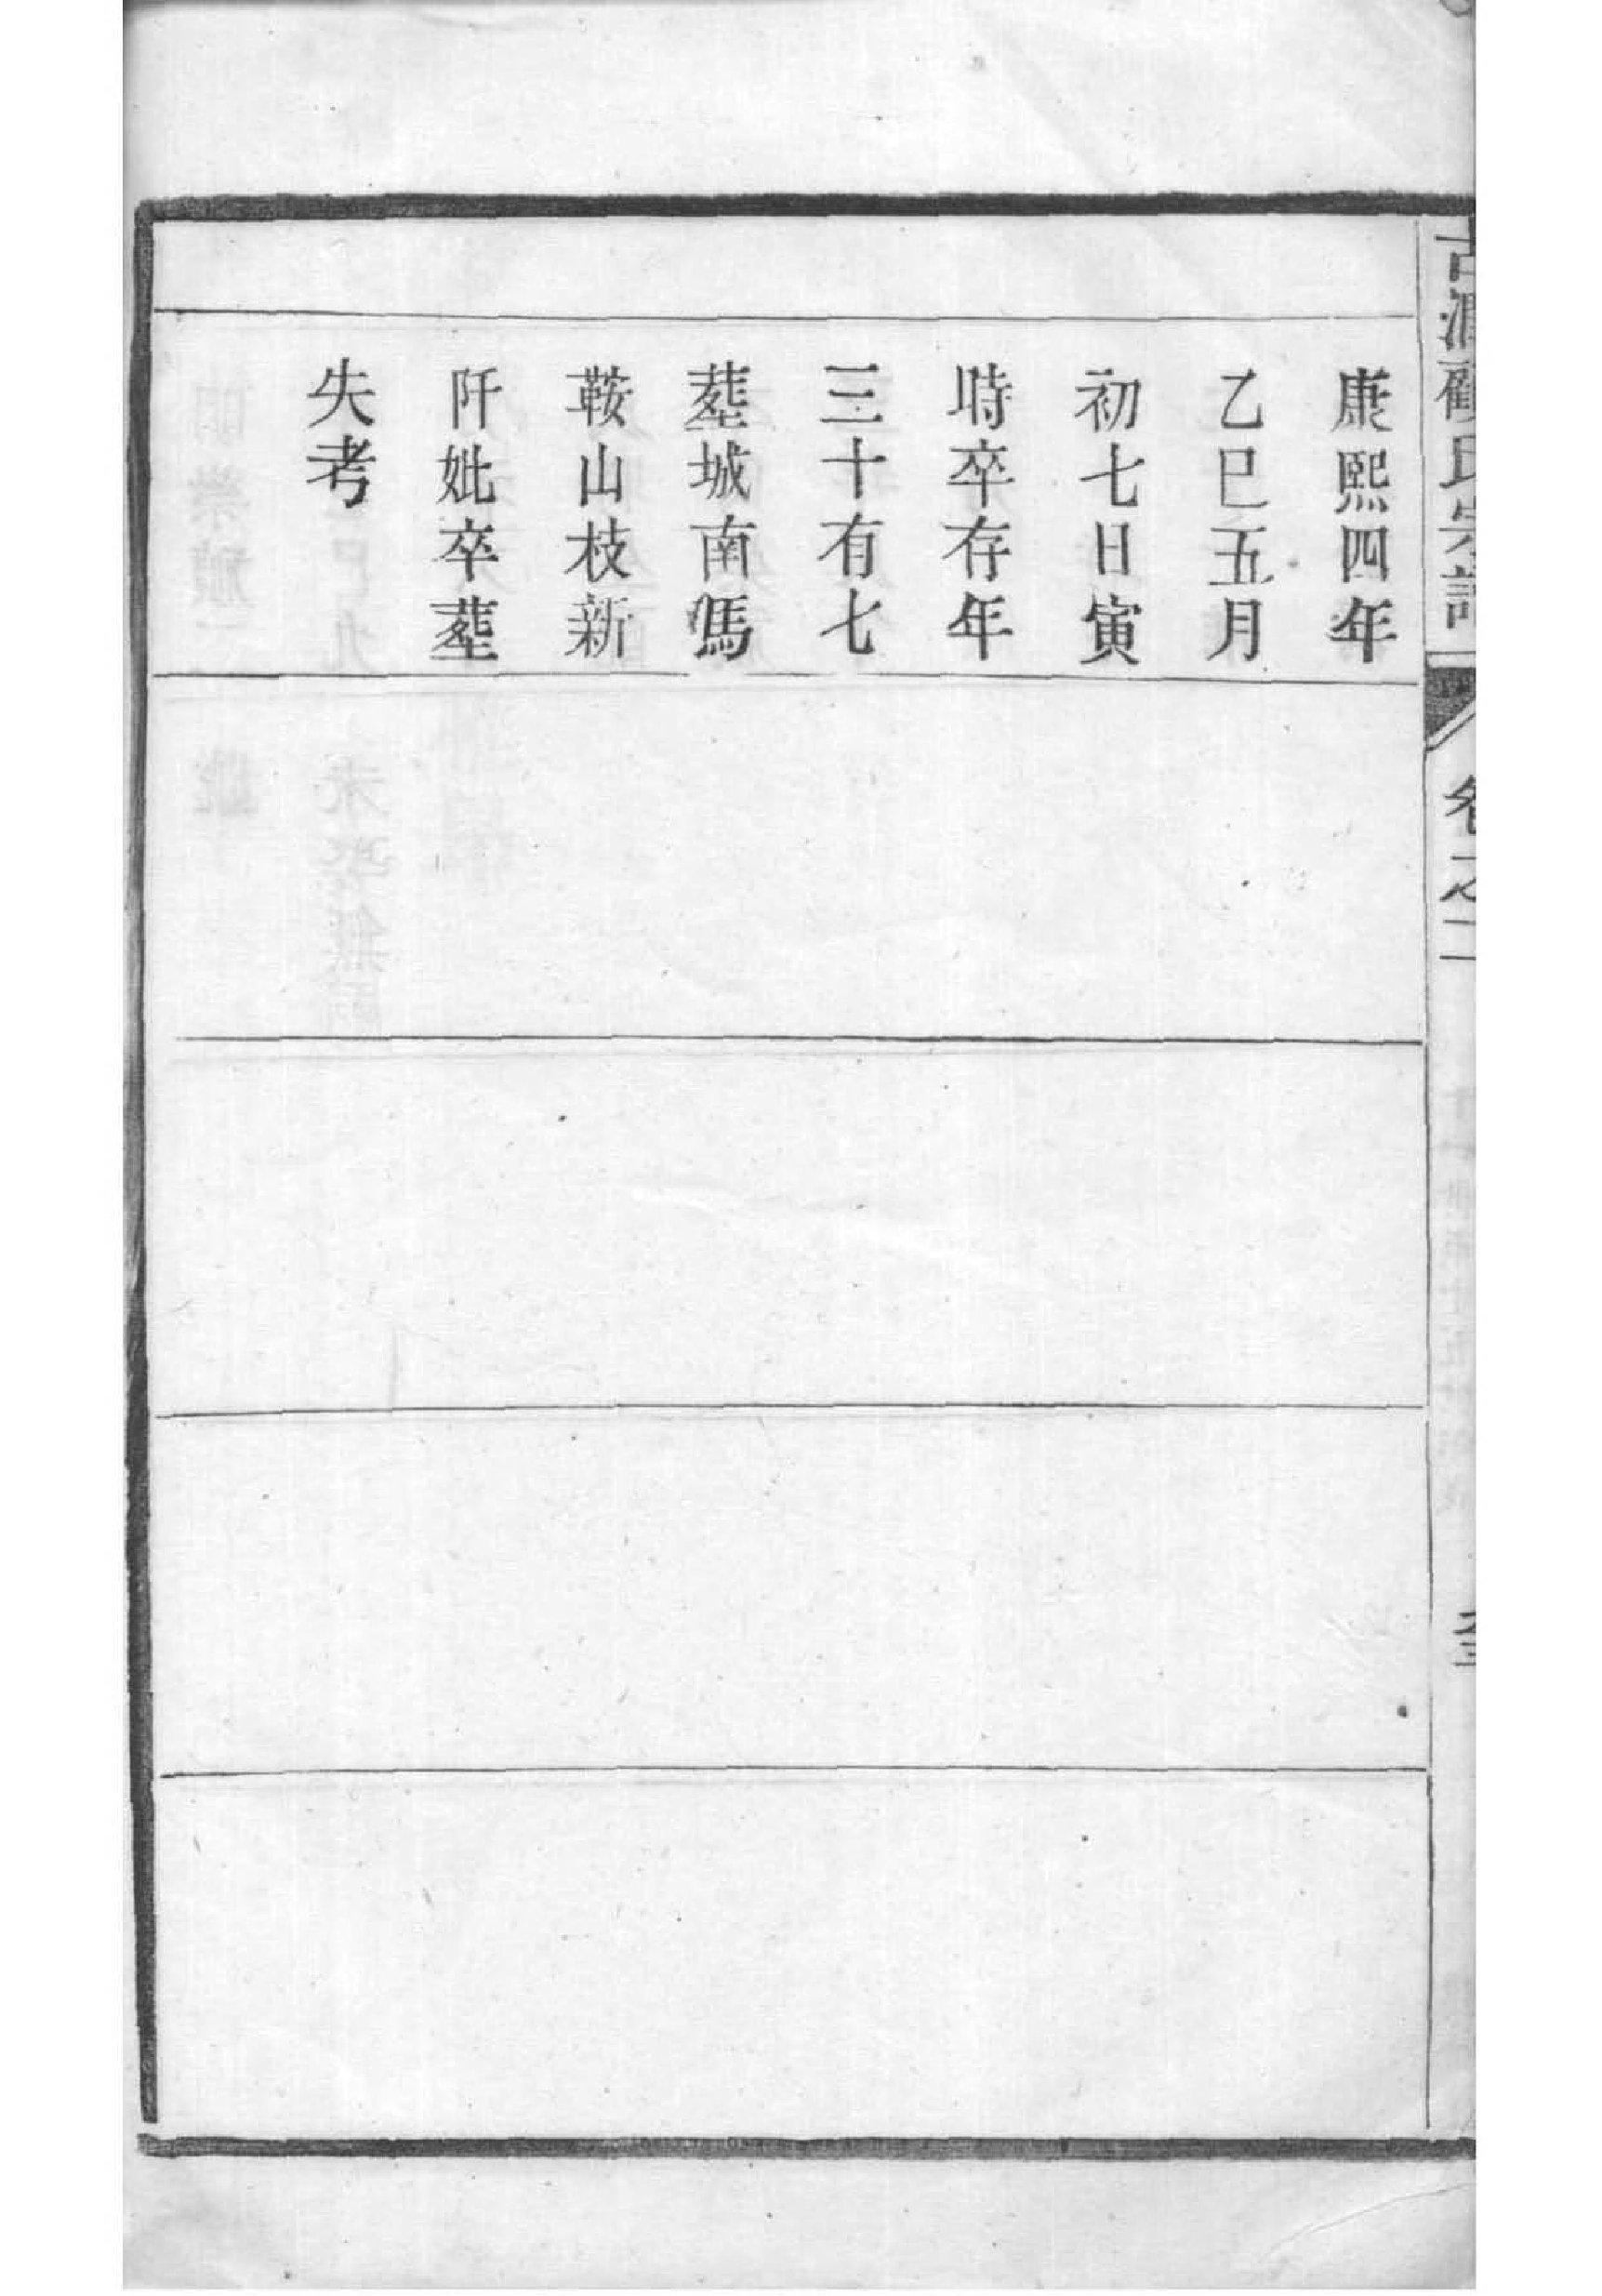 康熙四年
乙巳五月
初七日寅
時卒存年
三十有七
塟城南馬
鞍山枝新
阡妣卒塟
失考
顧氏宗譜
卷之二